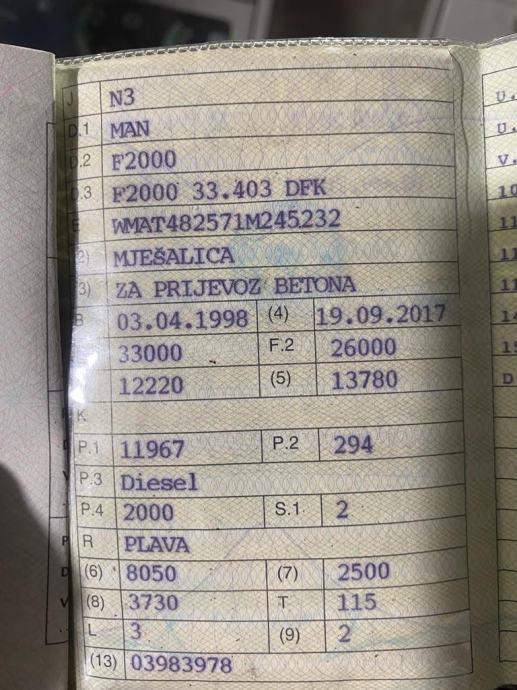 J N3
D.1 MAN
D.2 F2000
D.3 F2000 33.403 DFK
E WMAT482571M245232
2) MJEŠALICA
3) ZA PRIJEVOZ BETONA
B 03.04.1998 (4) 19.09.2017
33000 F.2 26000
12220 (5) 13780
K
P.1 11967 P.2 294
P.3 Diesel
P.4 2000 S.1 2
R PLAVA
(6) 8050 (7) 2500
(8) 3730 T 115
L 3 (9) 2
(13) 03983978
U.
U.
V.
10
11
11
11
14
15
D